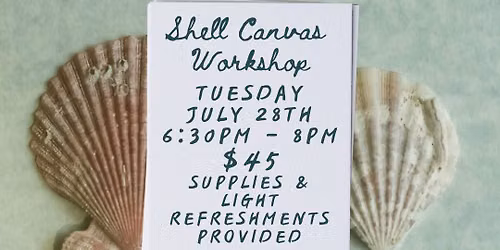 Shell Canvas
Workshop
TUESDAY
JULY 28TH
6:30PM - 8PM
$45
SUPPLIES &
LIGHT
REFRESHMENTS
PROVIDED